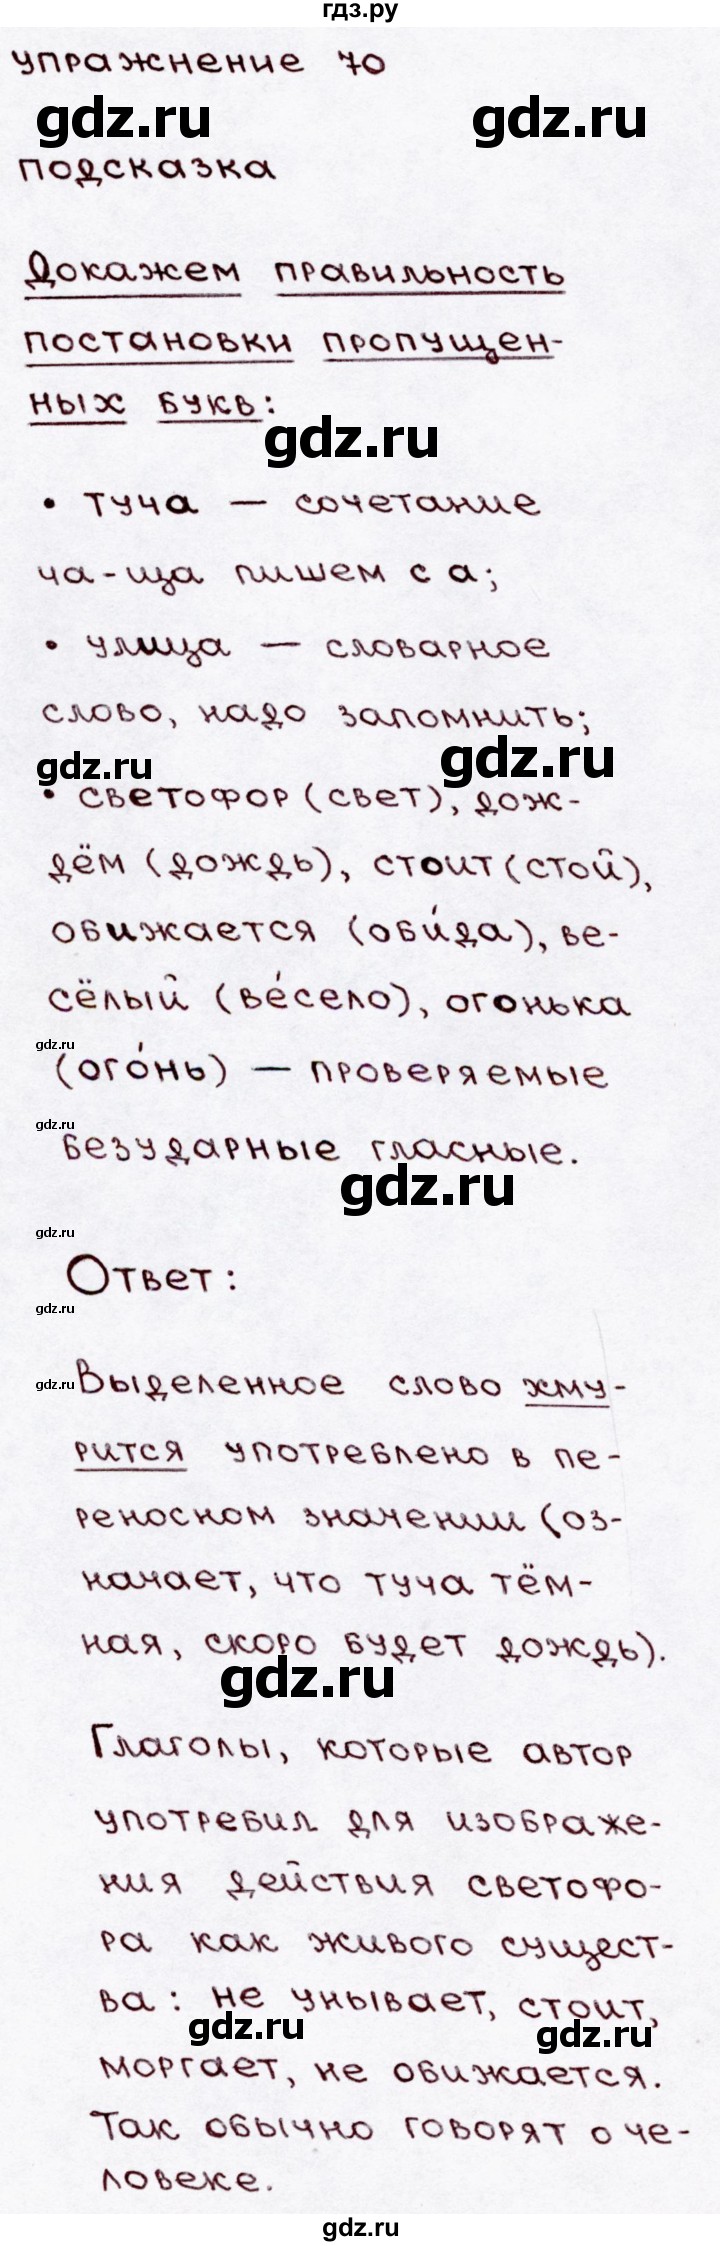 гдз.ру
упражнение 70
gdz.ru gdz.ru
подсказка
Докажем правильность
постановки пропущен-
ных букв:
gdz.ru
• туча — сочетание
ча-ща пишем с а;
• улица — словарное
слово, надо запомнить;
gdz.ru gdz.ru
• светофор (свет), дож-
дём (дождь), стоит (стой),
обижается (оби́да), ве-
сёлый (ве́село), огонька
gdz.ru
(ого́нь) — проверяемые
gdz.ru
безударные гласные.
gdz.ru
gdz.ru
Ответ:
gdz.ru
gdz.ru
Выделенное слово хму-
рится употреблено в пе-
реносном значении (оз-
начает, что туча тём-
ная, скоро будет дождь).
gdz.ru
Глаголы, которые автор
употребил для изображе-
ния действия светофо-
ра как живого сущест-
ва: не унывает, стоит,
gdz.ru gdz.ru
моргает, не обижается.
Так обычно говорят о че-
ловеке.
gdz.ru